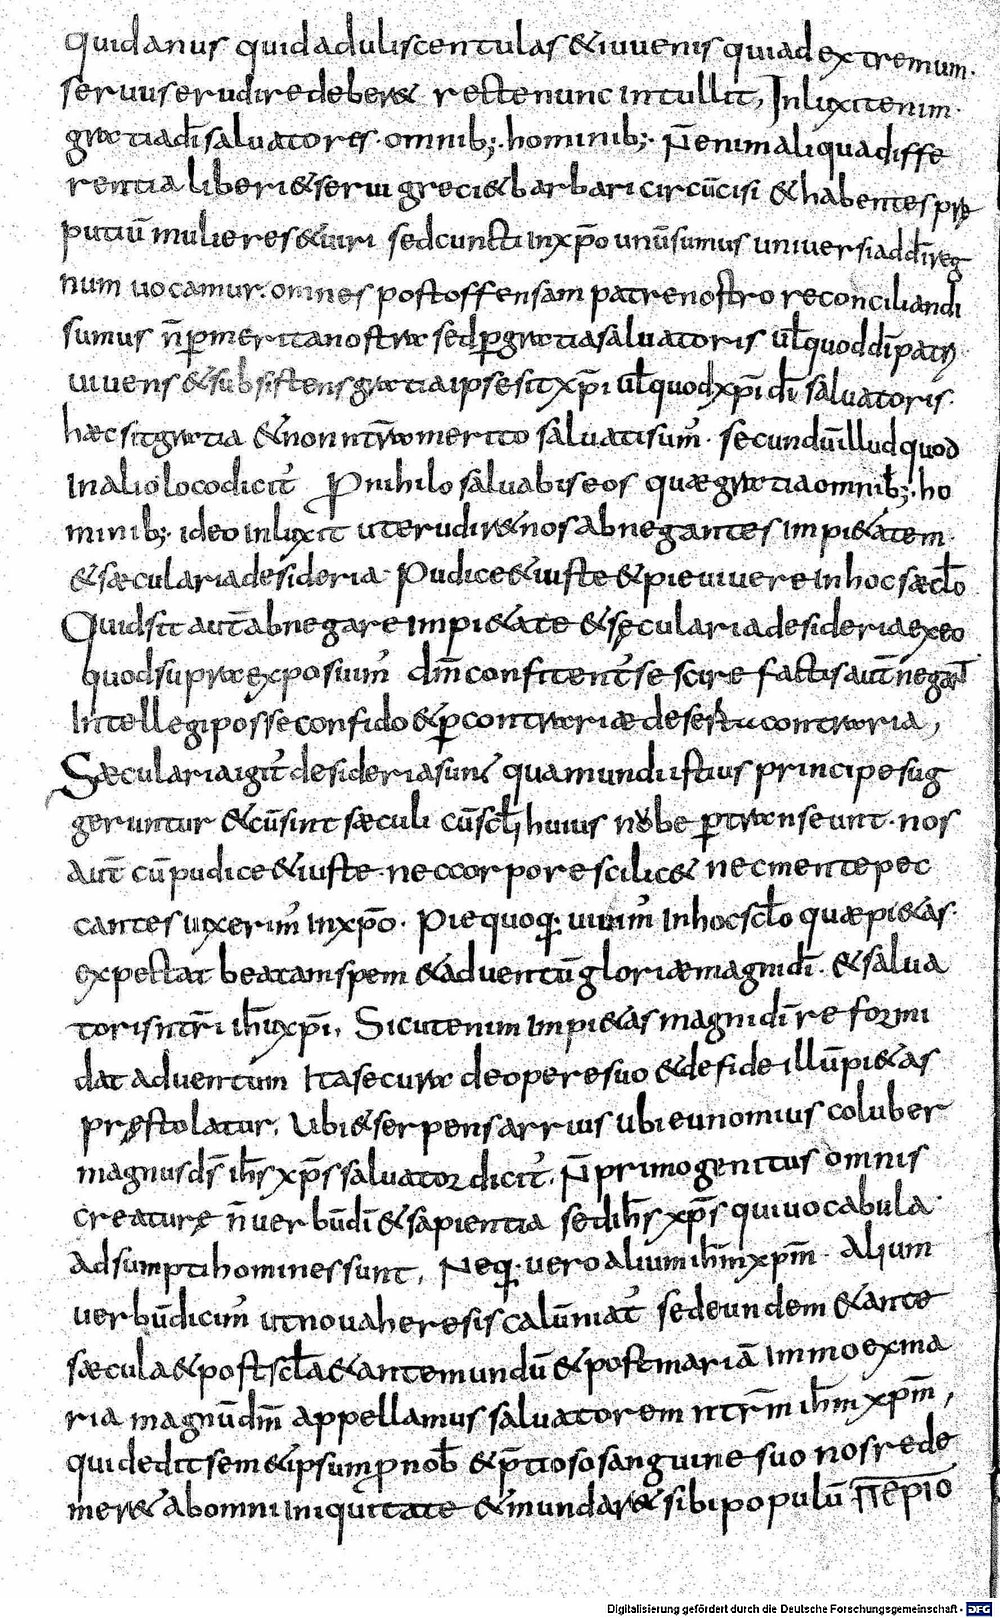 quid anus quid aduliscentulas & iuuenis quiad extremum·
seruus erudire deber& recte nunc intullit, Inluxit enim·
gratia dī saluatoris· omnib;· hominib;· N̄ enim aliqua diffe
rentia liberi & serui greci & barbari circūcisi & habentes prę
putiū mulieres & uiri sed cuncti in xp̄o unū sumus uniuersi ad dī reg
num uocamur· omnes post offensam patre nostro reconciliandi
sumus n̄ p̄ merita nostra sed p̄ gratia saluatoris ul̄ quod dī patris
uiuens & subsistens gratia ipse sit xp̄i ul̄ quod xp̄i dī saluatoris·
hæc sit gratia & non nr̄o merito saluati sum̄· secundū illud quod
In alio loco dicit̄ P nihilo saluabis eos quæ gratia omnib;· ho
minib;· ideo inluxit ut erudir& nos abnegantes impi&atem·
& sæcularia desideria· Pudice & iuste & pie uiuere in hoc sæcl̄o
Quid sit aut̄ abnegare impi&ate & sęcularia desideria ex eo
quod supra exposuim̄ dm̄ confitent̄ se scire factis aut̄ negant
Intellegi posse confido & p̄ contrariæ desertu contraria,
Sæcularia igit̄ desideria sunt qua mundi istius principe sug
geruntur & cū sint sæculi cū scl̄i huius nube p̄transeunt· nos
aut̄ cū pudice & iuste· nec corpore scilic& nec mente pec
cantes uixerim̄ in xp̄o· Pie quoq;· uiuim̄ In hoc scl̄o quæ pi&as·
expectat beatam spem & aduentū gloriæ magni dī· & salua
toris nr̄i ih̄u xp̄i, Sicut enim impi&as magni dī reformi
dat aduentum Ita secura de opere suo & de fide illū pi&as
pręstolatur, Ubi & serpens arrius ubi eunomius coluber
magnus ds̄ ih̄s xp̄s saluator dicit̄, N̄ primogenitus omnis
creaturę n̄ uerbū dī & sapientia sed ih̄s xp̄s qui uocabula·
adsumpti hominessunt, Neq;· uero alium ih̄m xp̄m· Alium
uerbū dicim̄ ut noua heresis calūniat̄ sed eundem & ante
sæcula & post scl̄a & ante mundū & post mariā Immo ex ma
ria magnū dm̄ appellamus saluatorem nr̄m ih̄m xp̄m,
qui dedit sem&ipsum p nob̄ & p̄tioso sanguine suo nos rede
mer& ab omni iniquitate & mundar& sibi populū περιο
Digitalisierung gefördert durch die Deutsche Forschungsgemeinschaft - DFG